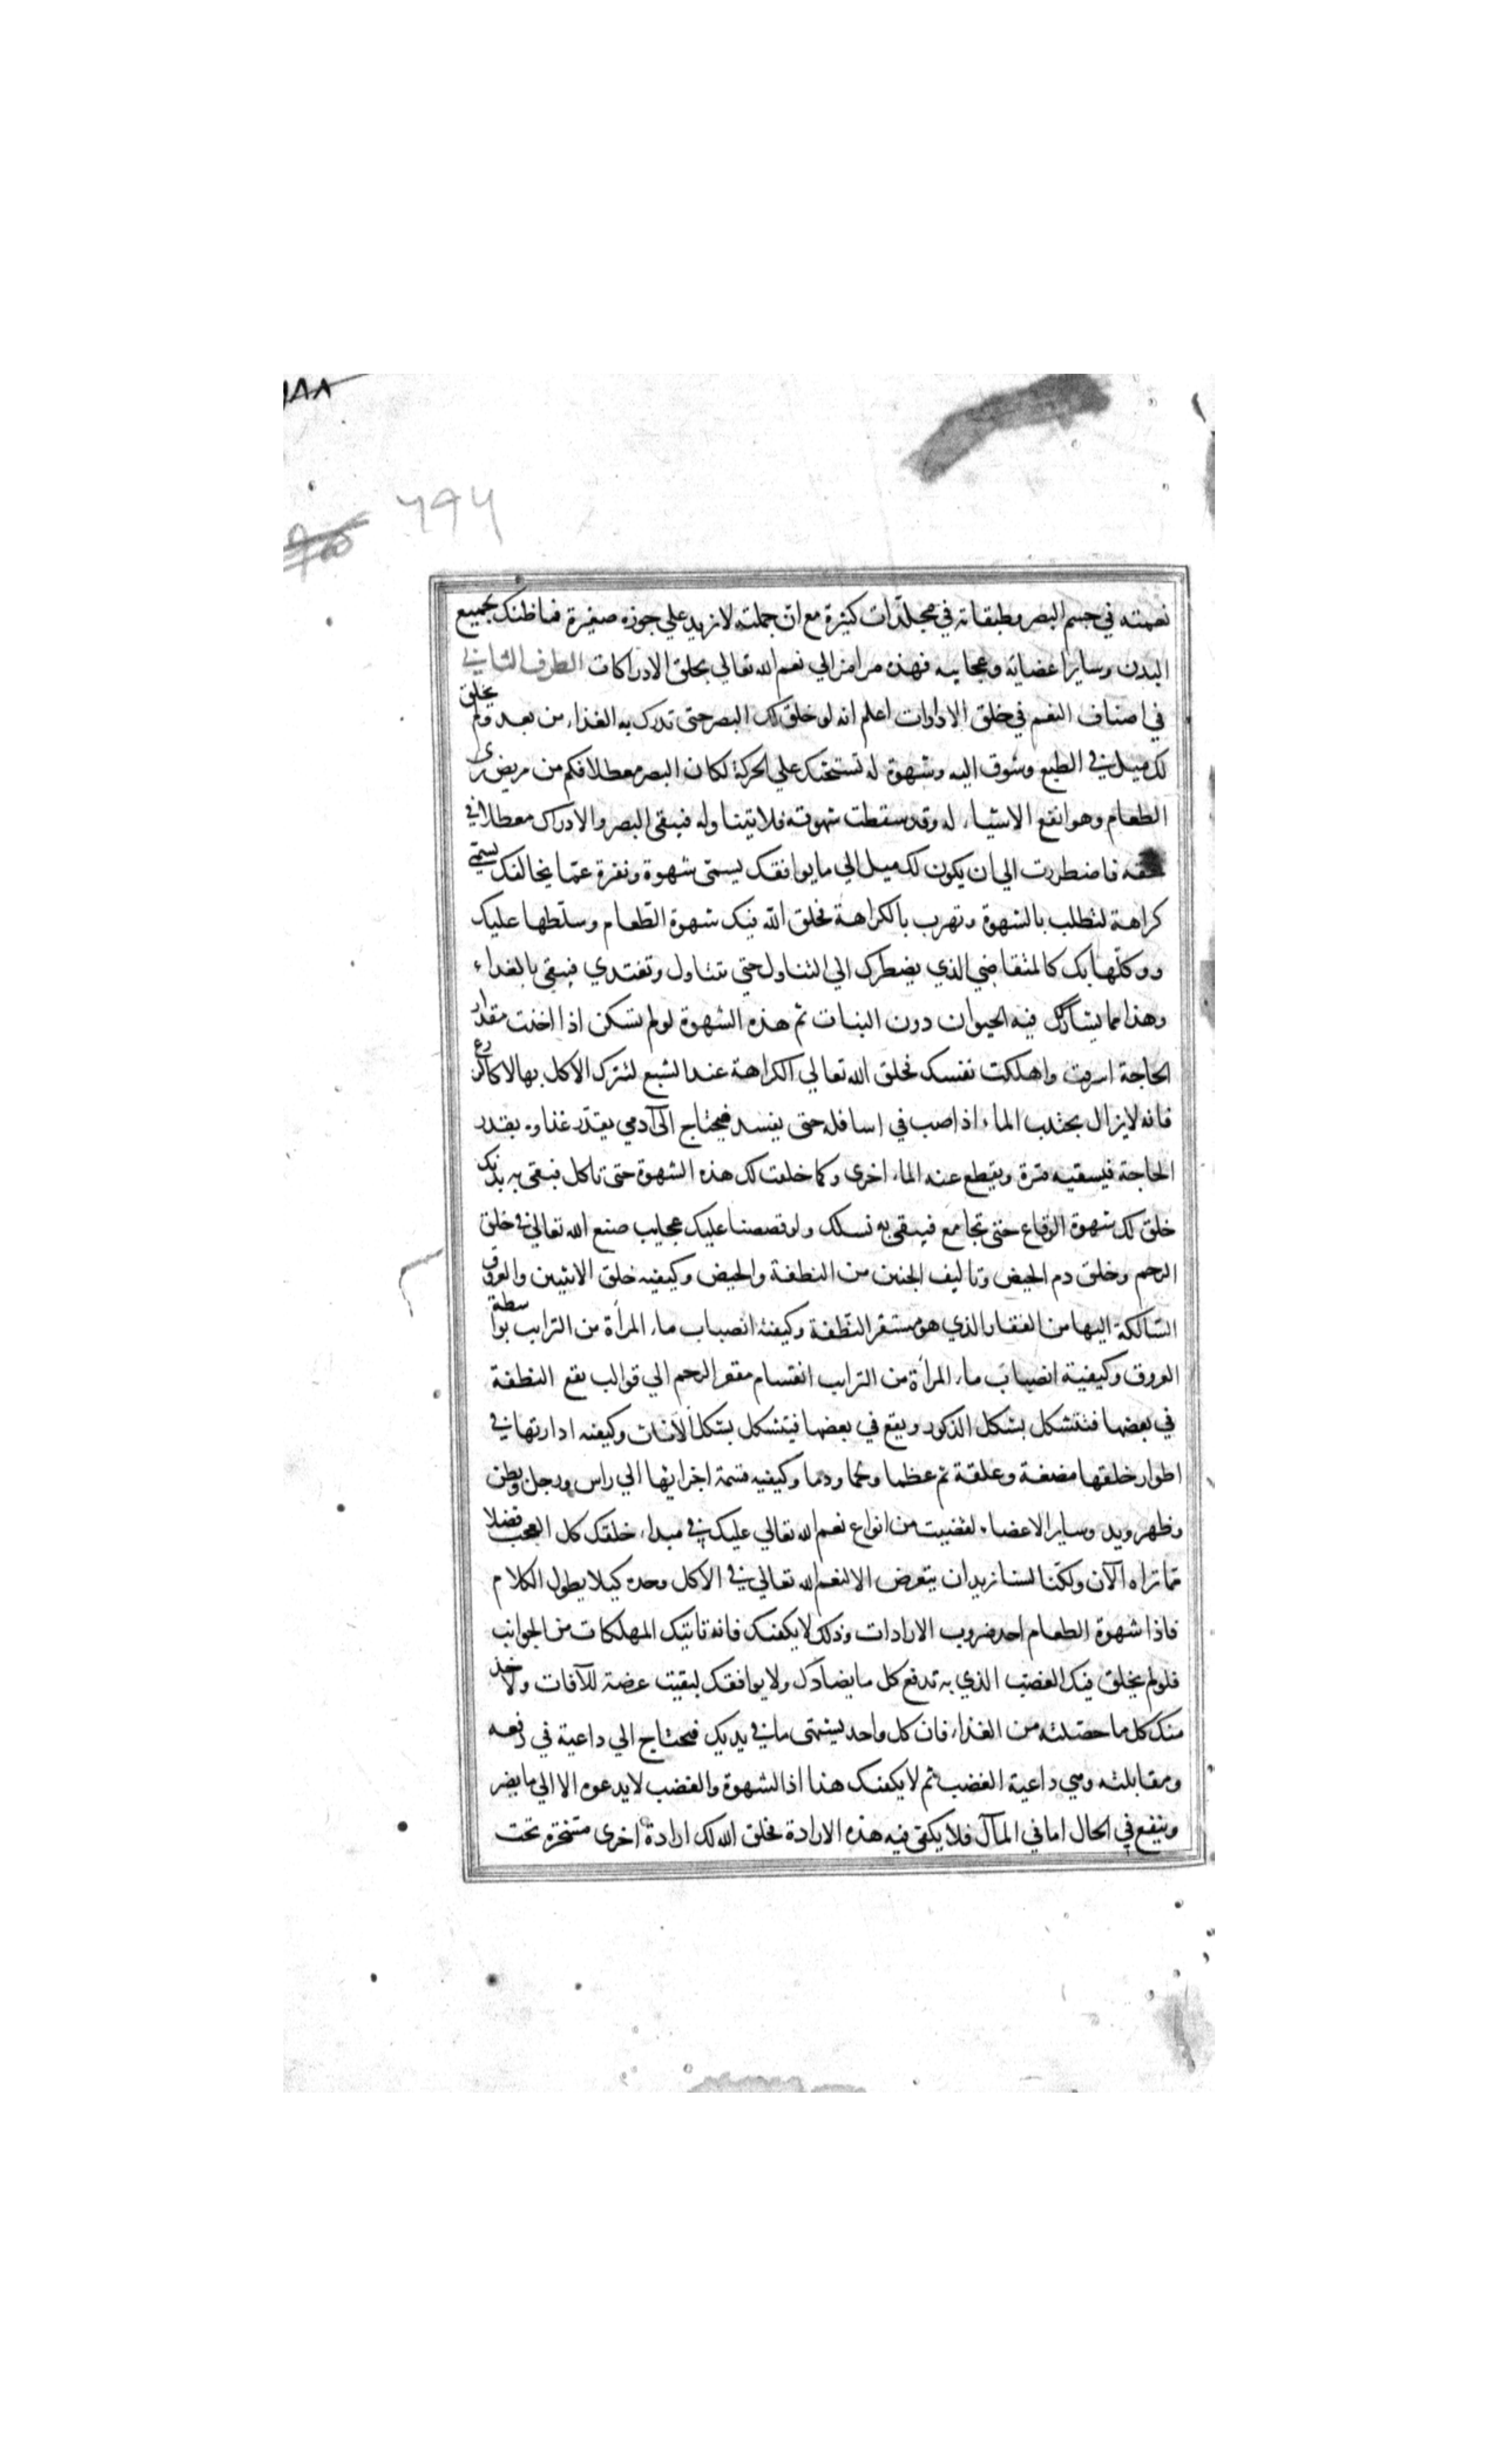 ١٨٨
٦٩٦
نعمته في جسم البصر وطبقاته في مجلدات كثيرة مع ان جملته لا يزيد علي جوزه صغيرة فما ظنك بجميع
البدن وساير اعضايه وعجايبه فهذه مرامز الي نعم الله تعالي بخلق الادراكات الطرف الثاني
في اصناف النعم في خلق الارادات اعلم انه لو خلق لك البصر حتى تدرك به الغذاء من بعد ولم يخلق
لك ميل في الطبع وشوق اليه وشهوة له تستحثك علي الحركة لكان البصر معطلا فكم من مريض يرى
الطعام وهو انفع الاشياء له وقد سقطت شهوته فلا يتناوله فيبقى البصر والادراك معطلا في
حقه فاضطررت الي ان يكون لك ميل الي ما يوافقك يسمى شهوة ونفرة عما يخالفك يسمى
كراهة لتطلب بالشهوة وتهرب بالكراهة فخلق الله فيك شهوة الطعام وسلطها عليك
ووكلها بك كالمتقاضي الذي يضطرك الي التناول حتي تتناول وتغتدي فيبقي بالغداء
وهذا مما يشاركك فيه الحيوان دون النبات ثم هذه الشهوة لو لم تسكن اذا اخذت مقدار
الحاجة اسرفت واهلكت نفسك فخلق الله تعالي الكراهة عند الشبع لتترك الاكل بها لا كالزرع
فانه لا يزال يجذب الماء اذا صب في اسافله حتى يفسد فيحتاج الى آدمي يقدر غذاوه بقدر
الحاجة فيسقيه مرة ويقطع عنه الماء اخري وكما خلقت لك هذه الشهوة حتى تاكل فيبقى به بدنك
خلق لك شهوة الوقاع حتى تجامع فيبقي به نسلك ولو قصصنا عليك عجايب صنع الله تعالي في خلق
الرحم وخلق دم الحيض وتاليف الجنين من النطفة والحيض وكيفيه خلق الانثيين والعروق
السالكة اليها من الفقار الذي هو مستقر النطفة وكيفية انصباب ماء المرأة من الترايب بواسطة
العروق وكيفية انصباب ماء المرأة من الترايب انقسام مقعر الرحم الي قوالب يقع النطفة
في بعضها فتتشكل بشكل الذكور ويقع في بعضها فيتشكل بشكل الاناث وكيفيه ادارتها في
اطوار خلقها مضغة وعلقة ثم عظما ولحما ودما وكيفيه قسمة اجزايها الي راس ورجل وبطن
وظهر ويد وساير الاعضاء لقضيت من انواع نعم الله تعالي عليك في مبداء خلقك كل العجب فضلا
مما تراه الآن ولكنا لسنا نريد ان يتعرض الا لنعم الله تعالي في الاكل وحده كيلا يطول الكلام
فاذا شهوة الطعام احد ضروب الارادات وذلك لا يكفيك فانه تاتيك المهلكات من الجوانب
فلو لم يخلق فيك الغضب الذي به تدفع كل ما يضادك ولا يوافقك لبقيت عرضة للآفات ولاخذ
منك كل ما حصلته من الغذاء فان كل واحد يشتهى ما في يديك فيحتاج الي داعية في دفعه
ومقابلته وهي داعية الغضب ثم لا يكفيك هذا اذ الشهوة والغضب لا يدعوه الا الي ما يضر
وينفع في الحال اما في المآل فلا يكفي فيه هذه الارادة فخلق الله لك ارادة اخرى مسخرة تحت